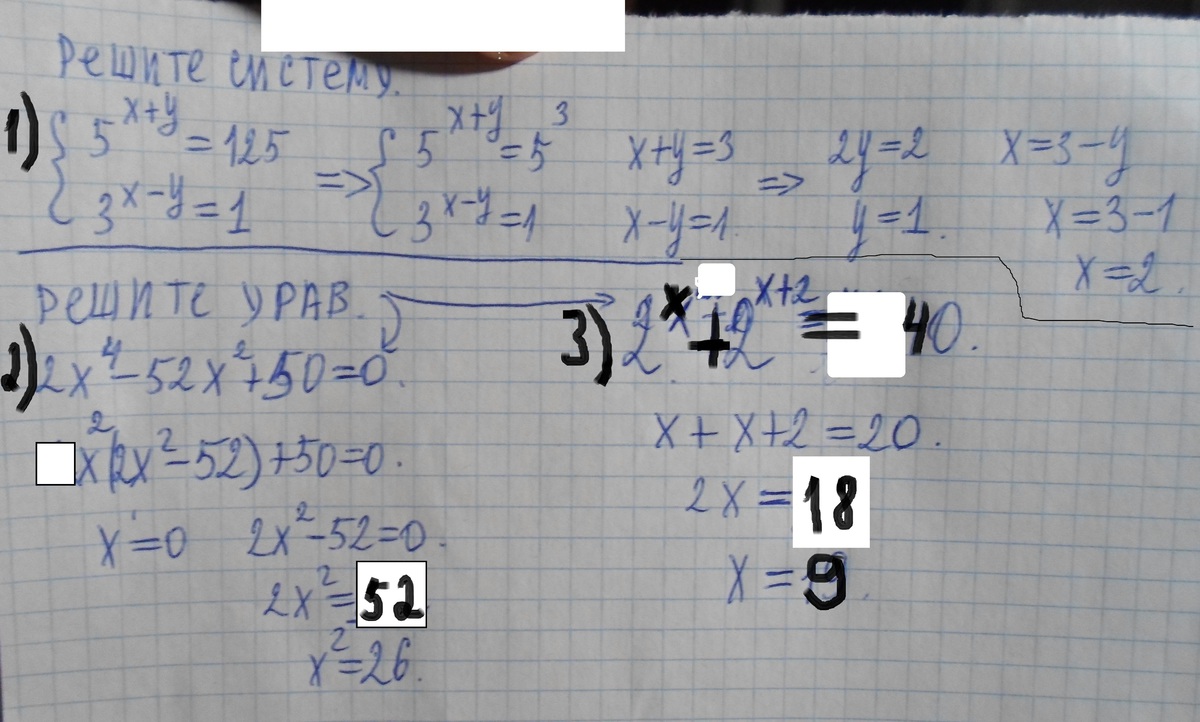 Решите систему.
1) { 5^{x+y} = 125 => { 5^{x+y} = 5^3 x+y=3 => 2y=2 x=3-y
3^{x-y} = 1 3^{x-y} = 1 x-y=1. y=1. x=3-1
x=2.
РЕШИТЕ УРАВ.
2) 2x^4-52x^2+50=0.
x^2(2x^2-52)+50=0.
x=0 2x^2-52=0.
2x^2=52
x^2=26.
3) 2^x+2^{x+2}=40.
x+x+2=20.
2x=18
x=9.